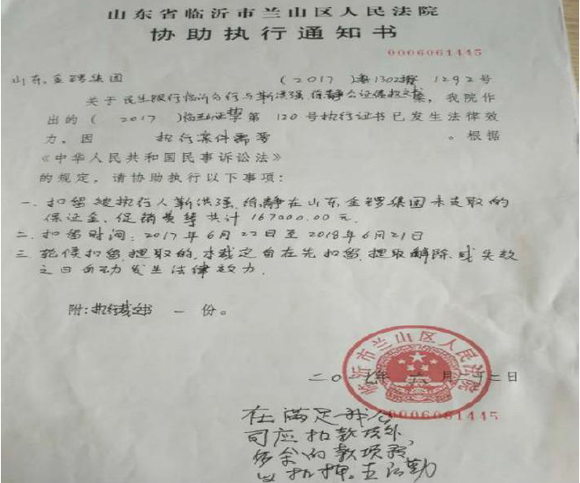 山东省临沂市兰山区人民法院
协助执行通知书
0006061445
山东金锣集团
(2017)鲁1302执1292号
关于民生银行临沂分行与靳洪强、徐静公证债权文书案，我院作
出的(2017)临 证 第120号执行证书已发生法律效
力。因 执行案件需要 。根据
《中华人民共和国民事诉讼法》
的规定，请协助执行以下事项：
一、扣留被执行人靳洪强、徐静在山东金锣集团未支取的
保证金、促销费等共计167000.00元.
二、扣留时间：2017年6月22日至2018年6月21日
三、轮候扣留、提取的，本裁定自在先扣留、提取解除或失效
之日自动发生法律效力.
附：执行裁定书 一 份。
临沂市兰山区人民法院
二〇一七年 六 月 二十二日
0006061445
在满足我公
司应扣款项外,
多余的款项予
以扣押.